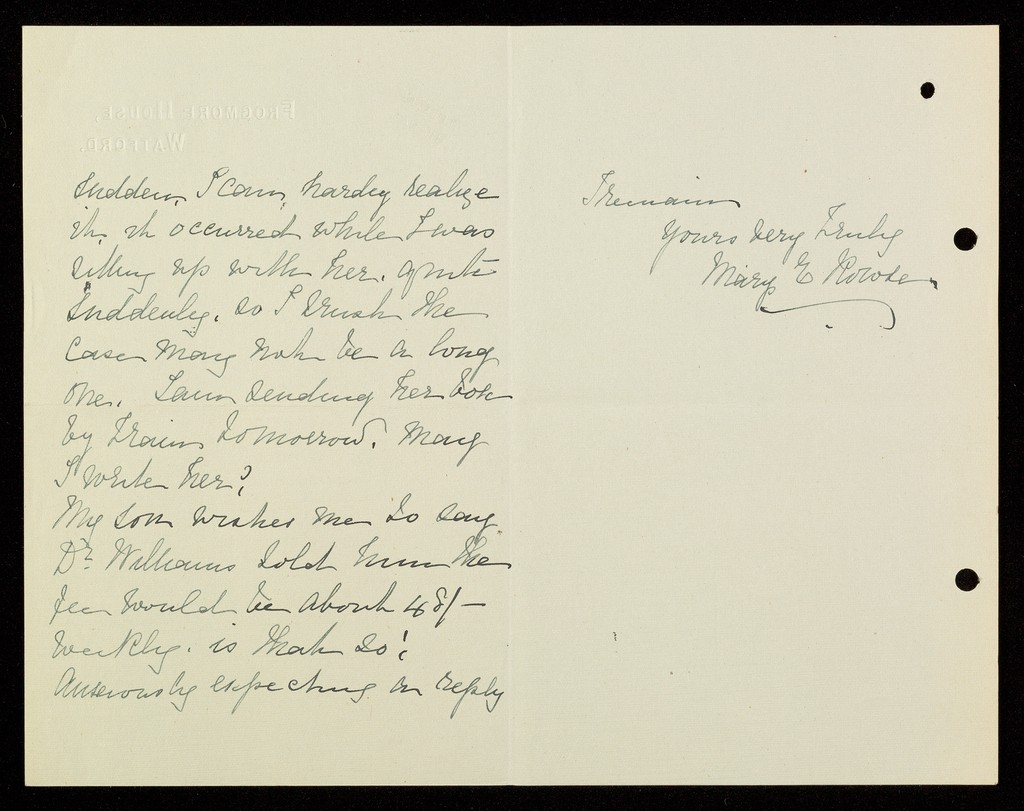 FROGMORE HOUSE,
WATFORD.
sudden, I can hardly realize
it, it occurred while I was
sitting up with her. quite
suddenly. so I trust the
case may not be a long
one. I am sending her box
by train tomorrow. May
I write her?
My son wishes me to say
Dr. Williams told him the
fee would be about 48/-
weekly. is that so?
Anxiously expecting a reply
I remain
Yours very truly
Mary E Rowse